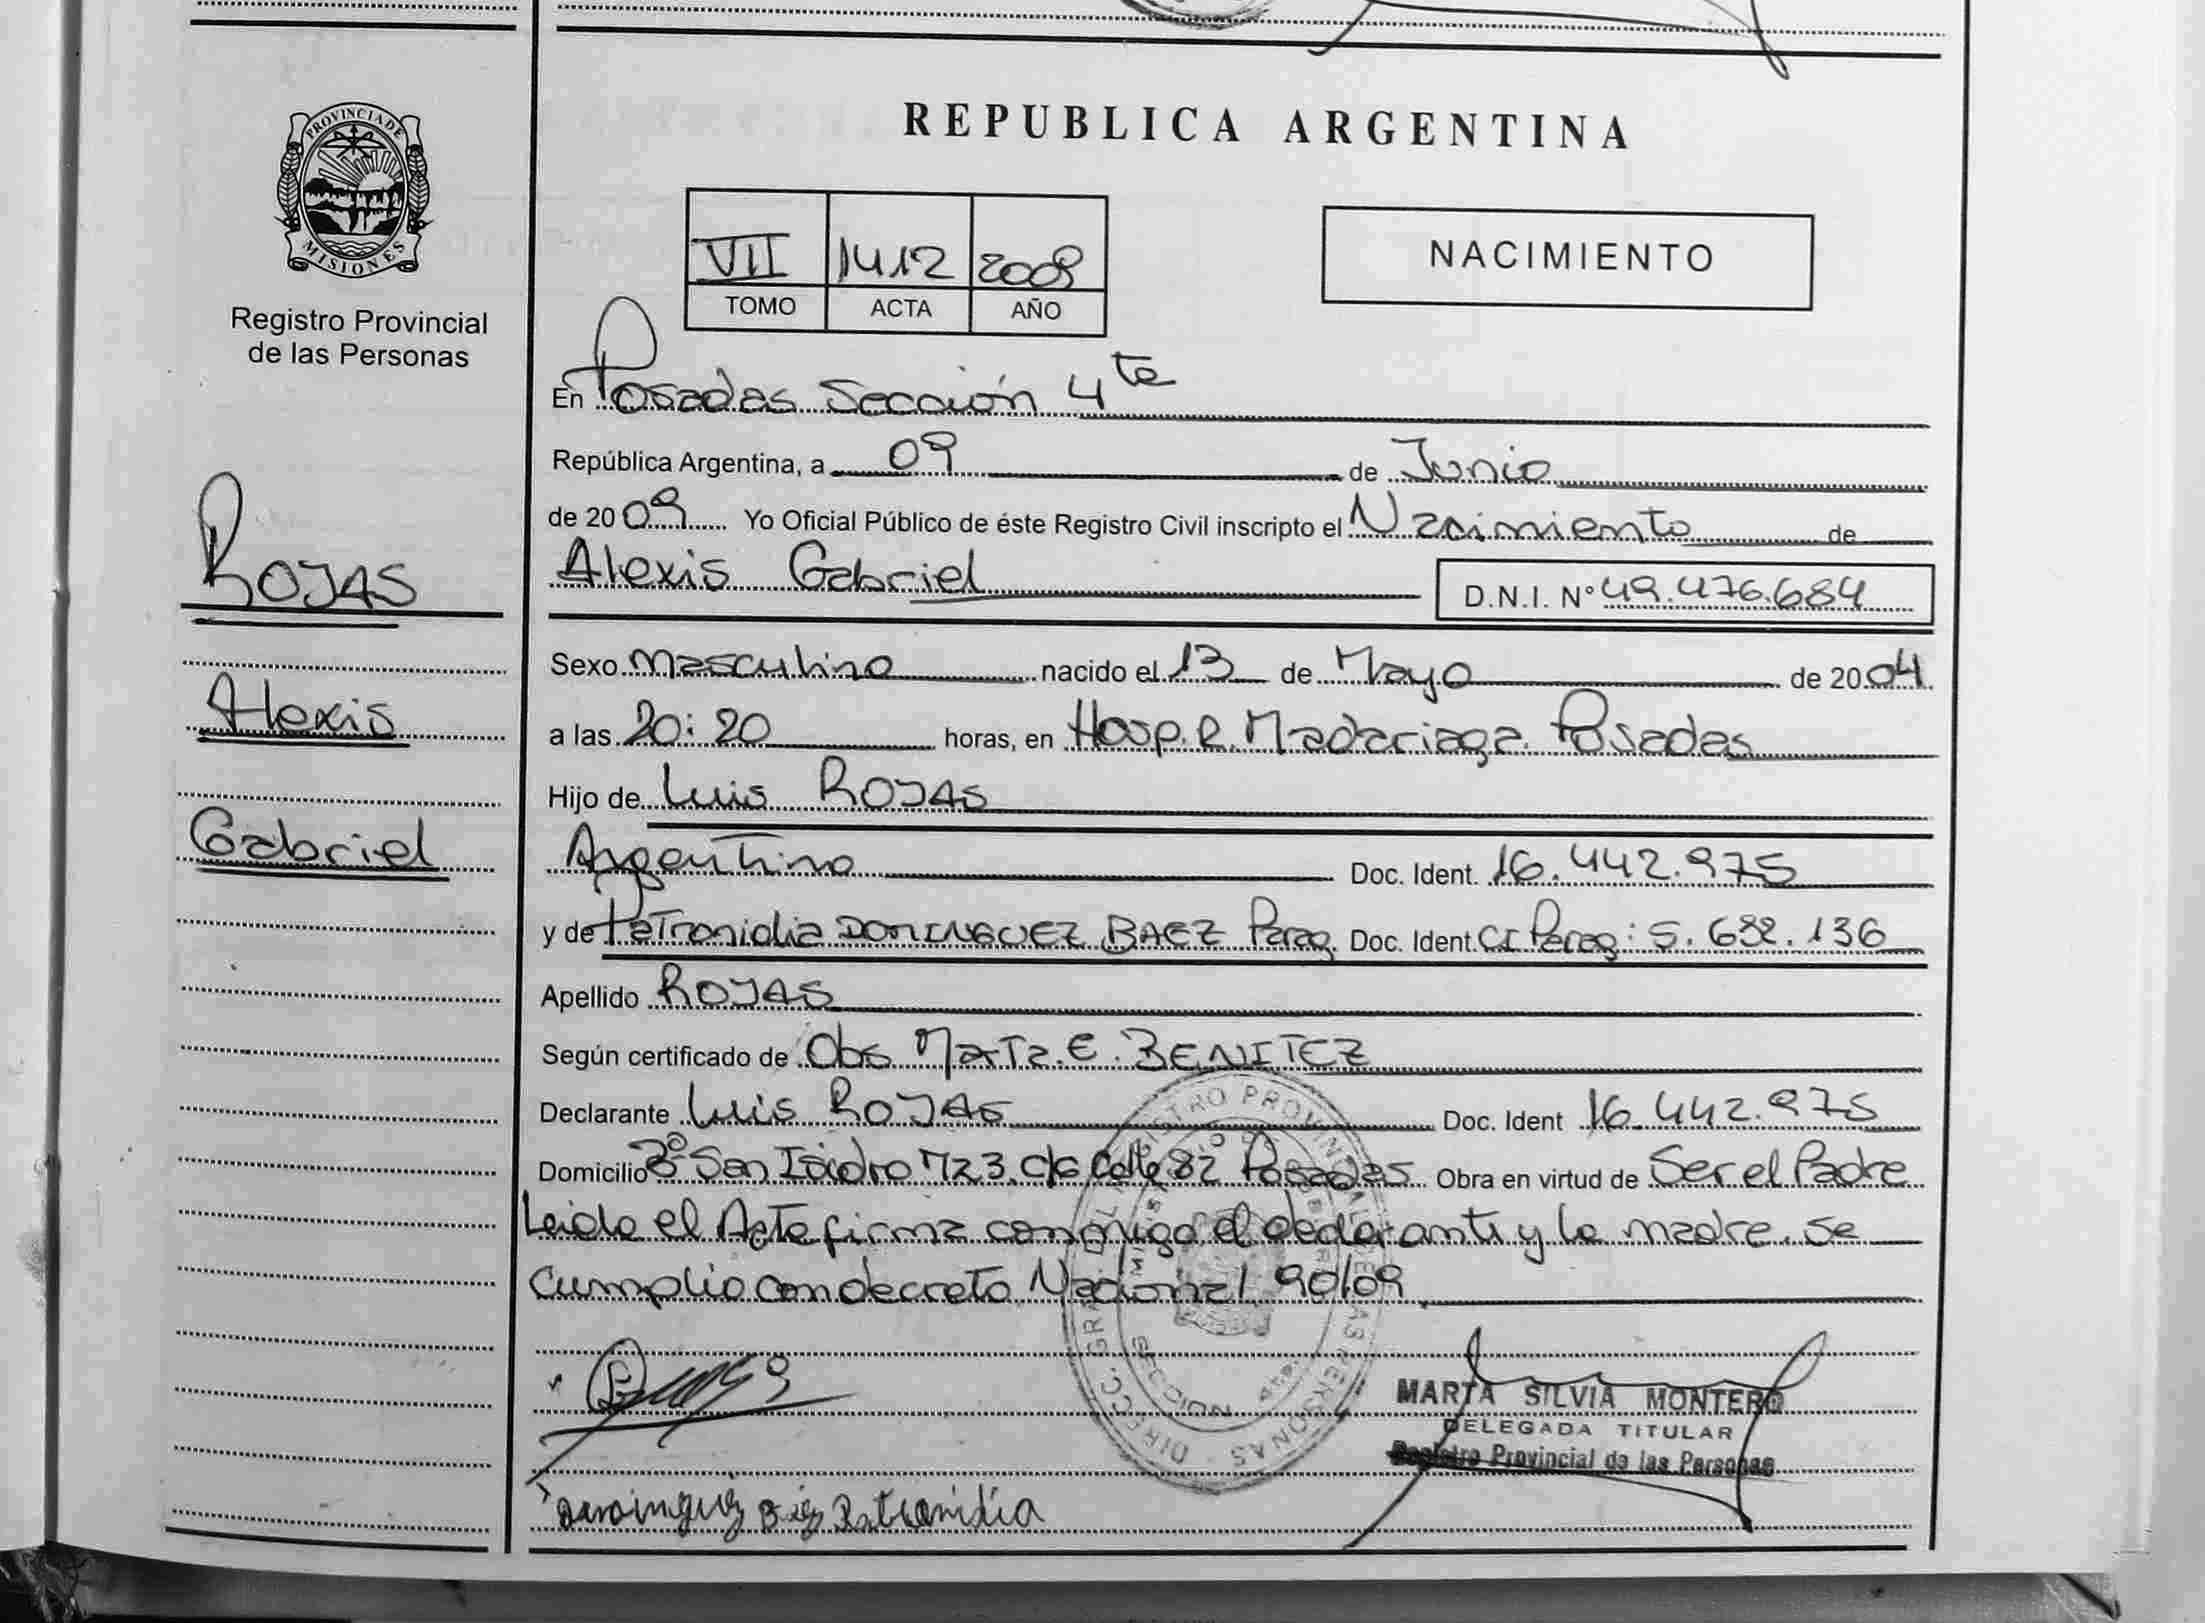 PROVINCIA DE
MISIONES
Registro Provincial
de las Personas
ROJAS
Alexis
Gabriel
REPUBLICA ARGENTINA
VII 1412 2009
TOMO ACTA AÑO
NACIMIENTO
En Posadas Sección 4ta
República Argentina, a 09 de Junio
de 2009 Yo Oficial Público de éste Registro Civil inscripto el Nacimiento de
Alexis Gabriel D.N.I. N° 49.476.684
Sexo Masculino nacido el 13 de Mayo de 2004
a las 20:20 horas, en Hosp. R. Madariaga. Posadas
Hijo de Luis ROJAS
Argentino Doc. Ident. 16.442.975
y de Patronidia DOMINGUEZ BAEZ Parag. Doc. Ident. CI Parag: 5.632.136
Apellido ROJAS
Según certificado de Obs Marta. E. BENITEZ
Declarante Luis ROJAS Doc. Ident 16.442.975
Domicilio Bº San Isidro Mz 3. c/6 Calle 82 Posadas Obra en virtud de Ser el Padre
Leida el Acta firma conmigo el declarante y la madre. Se
cumplio con decreto Nacional 90/09
MARTA SILVIA MONTERO
DELEGADA TITULAR
Registro Provincial de las Personas
Dominguez Baez Patronidia